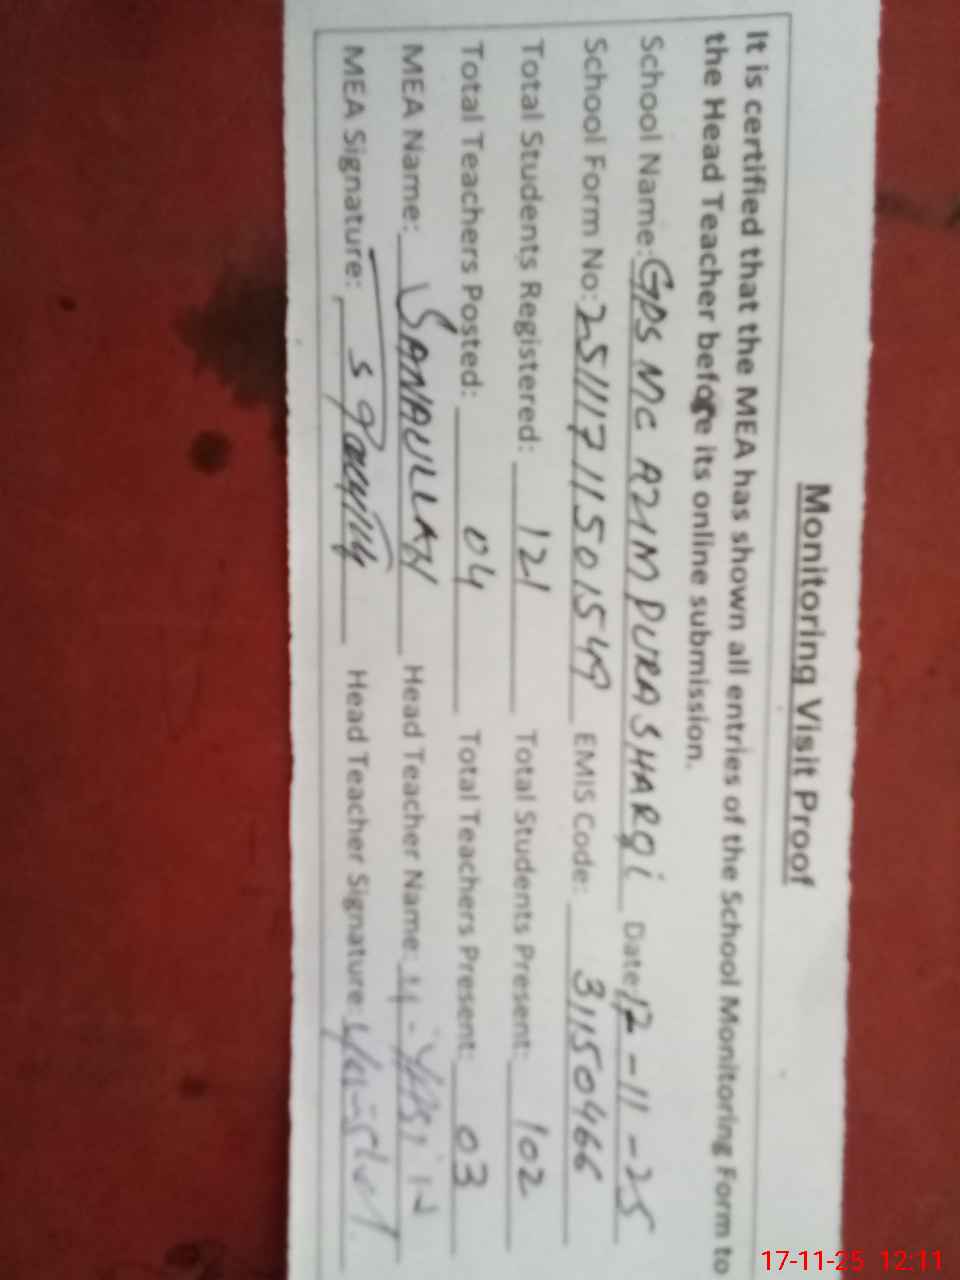 Monitoring Visit Proof
It is certified that the MEA has shown all entries of the School Monitoring Form to
the Head Teacher before its online submission.
School Name: GPS MC AZIM PURA SHARQI Date: 17-11-25
School Form No: 25111711501549 EMIS Code: 31150466
Total Students Registered: 121 Total Students Present: 102
Total Teachers Posted: 04 Total Teachers Present: 03
MEA Name: SANAULLAH Head Teacher Name: M. YASIN
MEA Signature: Head Teacher Signature:
17-11-25 12:11